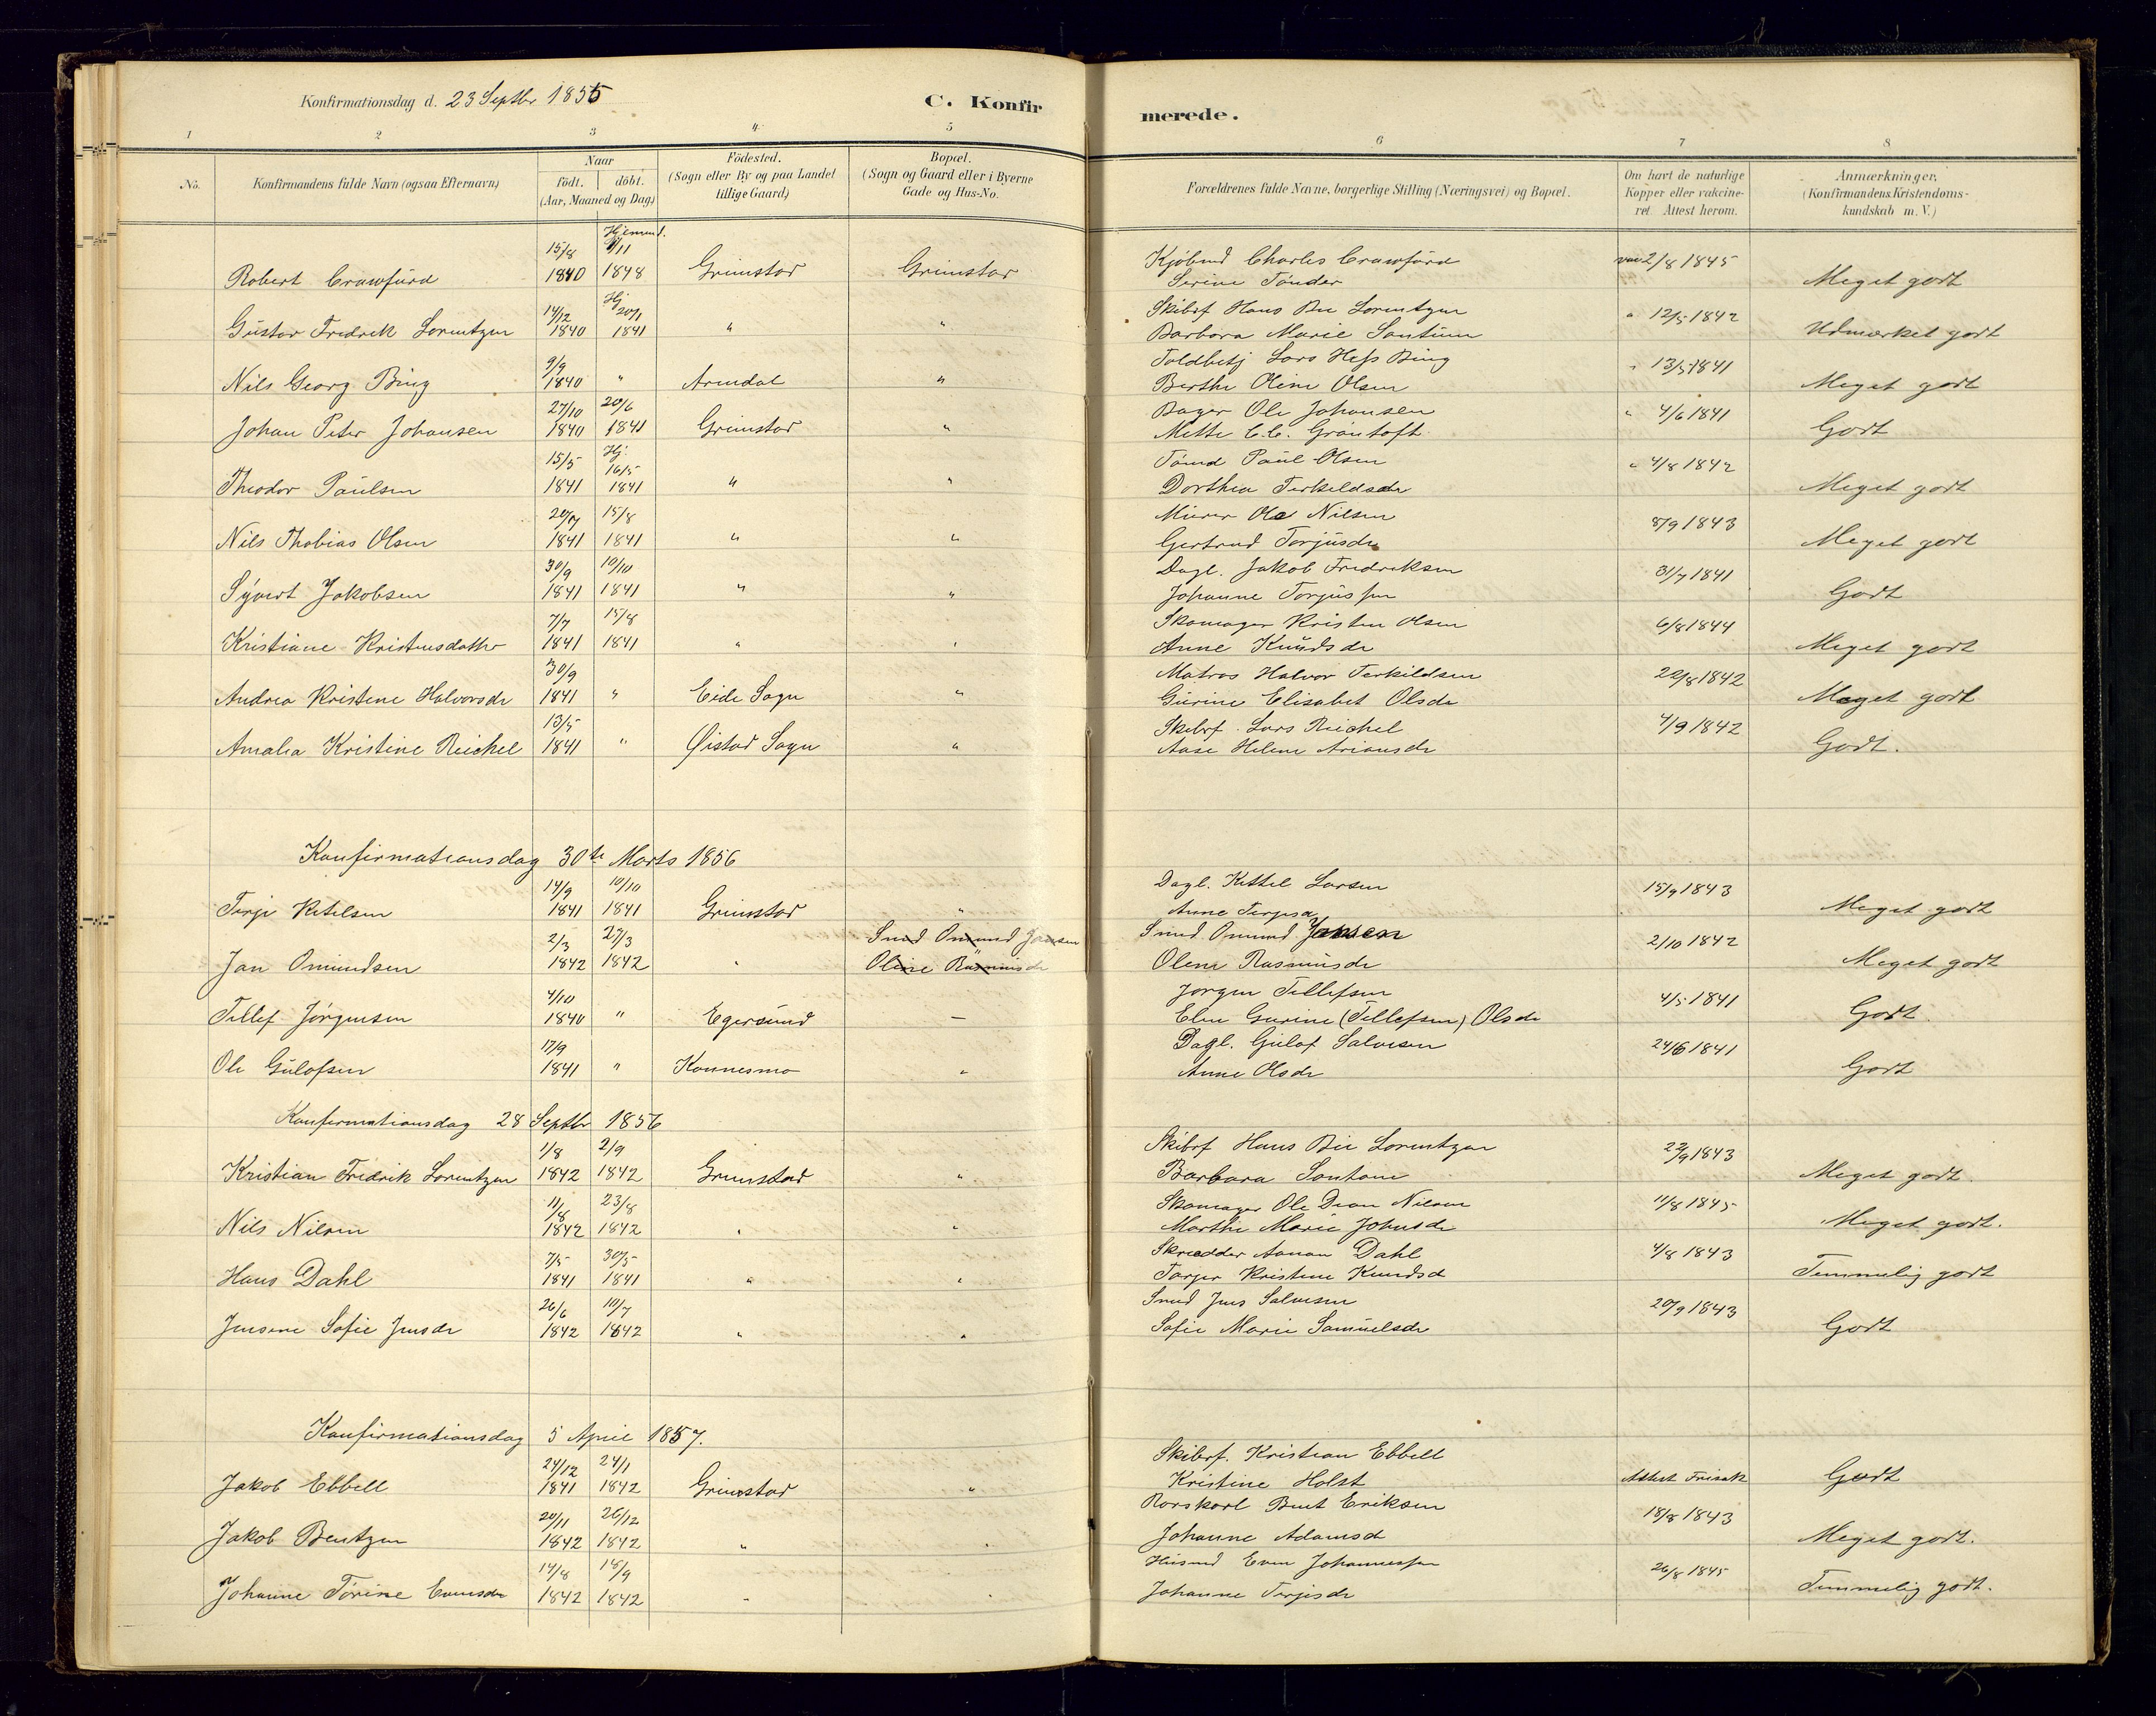 Konfirmationsdag d. 23 Septbr 1855
C. Konfirmerede.
1 2 3 4 5 6 7 8
No. Konfirmandens fulde Navn (ogsaa Efternavn) Naar födt. döbt. (Aar, Maaned og Dag) Födested. (Sogn eller By og paa Landet tillige Gaard) Bopæl. (Sogn og Gaard eller i Byerne Gade og Hus-No. Forældrenes fulde Navne, borgerlige Stilling (Næringsvei) og Bopæl. Om havt de naturlige Kopper eller vakcineret. Attest herom. Anmærkninger, (Konfirmandens Kristendomskundskab m. V.)
Hjemmd.
15/8 9/11 Kjöbmd Charles Crawfurd vac 2/8 1845
Robert Crawfurd 1840 1848 Grimstad Grimstad Serine Tönder Meget godt
14/12 Hj 20/1 Skibsf Hans Bie Lorentzen " 12/5 1842
Gustav Fredrik Lorentzen 1840 1841 " " Barbara Marie Santum Udmærket godt
9/9 Toldbetj Lars Hess Bing " 13/5 1841
Nils Georg Bing 1840 " Arendal " Berthe Oline Olsen Meget godt
27/10 20/6 Bager Ole Johansen " 4/6 1841
Johan Peter Johansen 1840 1841 Grimstad " Mette C.C. Gröntoft. Godt
15/5 Hj. 16/5 Tömd Paul Olsen " 4/8 1842
Theodor Paulsen 1841 1841 " " Dorthea Terkeldsdr Meget godt
20/7 15/8 Murer Ole Nilsen 8/9 1843
Nils Thobias Olsen 1841 1841 " " Gertrud Torjusdr Meget godt
30/9 10/10 Dagl. Jakob Fredriksen 31/7 1841
Syvert Jakobsen 1841 1841 " " Johanne Torjussen Godt
7/7 15/8 Skomager Kristen Olsen 6/8 1844
Kristiane Kristensdatter 1841 1841 " " Anne Knudsdr Meget godt
30/9 Matros Halvor Terkildsen 22/8 1842
Andrea Kristine Halvorsdr 1841 " Eide Sogn " Gurine Elisabet Olsdr Meget godt
13/5 Skibsf. Lars Reichel 4/9 1842
Amalia Kristine Reichel 1841 " Øistad Sogn " Aase Helene Ariansdr Godt.
Konfirmationsdag 30te Marts 1856
14/9 10/10 Dagl. Kittel Larsen 15/9 1843
Terje Ketelsen 1841 1841 Grimstad " Anne Terjesd Meget godt
2/3 27/3 Smed Omund Jansen Smed Omund Jansen 2/10 1842
Jan Omundsen 1842 1842 " Oline Rasmusdr Olene Rasmusdr Meget godt
4/10 Jørgen Tellefsen 4/5 1841
Tellef Jörgensen 1840 " Egersund — Elen Gurine (Tellefsen) Olsdr Godt.
17/9 Dagl. Gulof Salvesen 24/6 1841
Ole Gulofsen 1841 " Konnesmo " Anne Olsdr Godt
Konfirmationsdag 28 Septbr 1856
1/8 2/9 Skibsf Hans Bie Lorentzen 22/9 1843
Kristian Fredrik Lorentzen 1842 1842 Grimstad " Barbara Santum Meget godt.
11/8 23/8 Skomager Ole Dean Nilsen 11/8 1845
Nils Nilsen 1842 1842 " " Marthe Marie Johnsdr Meget godt.
7/5 30/5 Skrædder Aanon Dahl 4/8 1843
Hans Dahl 1841 1841 " " Torjer Kristine Knudsd Temmelig godt
26/6 10/7 Smed Jens Salvesen 20/9 1843
Jensene Sofie Jensdr 1842 1842 " " Sofie Marie Samuelsdr Godt
Konfirmationsdag 5 April 1857.
24/12 24/1 Skibsf. Kristian Ebbell
Jakob Ebbell 1841 1842 Grimstad " Kristine Holst Attest Frisak Godt
20/11 26/12 Rorskarl Bent Eriksen 18/8 1843
Jakob Bentzen 1842 1842 " " Johanne Adamsd Meget godt.
14/8 18/9 Husmd Even Johannessen 26/8 1845
Johanne Tørine Evensdr 1842 1842 " " Johanne Terjesdr Temmelig godt.